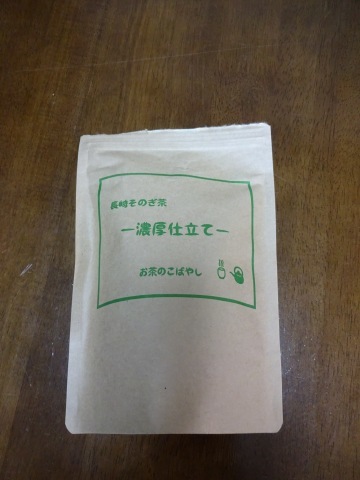 長崎そのぎ茶
―濃厚仕立て―
お茶のこばやし